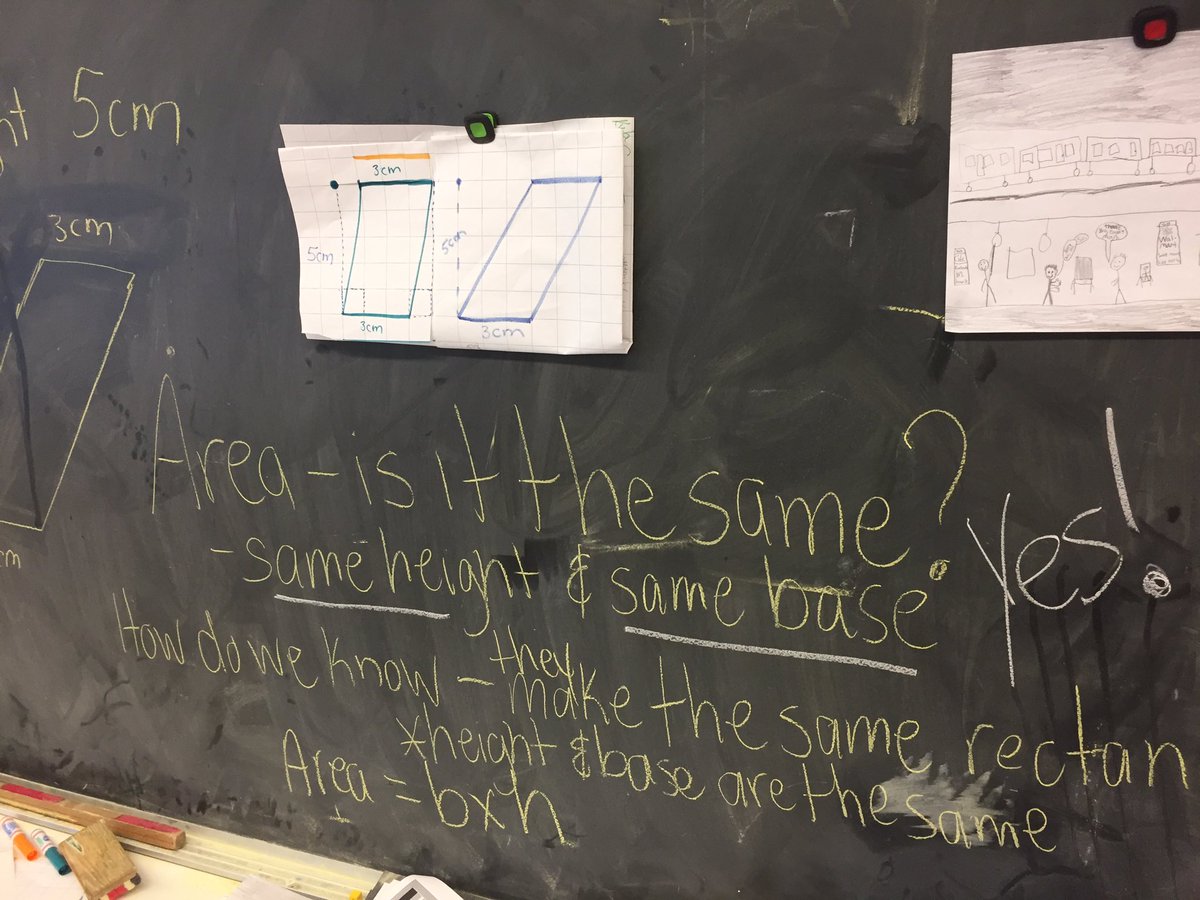 5cm
3cm
cm
3cm
5cm
3cm
5cm
3cm
Area - is it the same? Yes!
- same height & same base
How do we know - they make the same rectan
*height & base are the same
Area = bxh